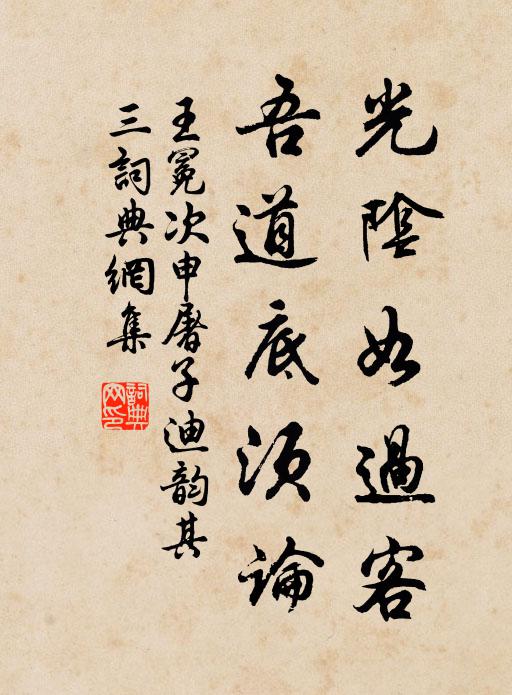 光陰如過客
吾道底須論
王冕次申屠子迪韵其
三詞典網集
詞典网印